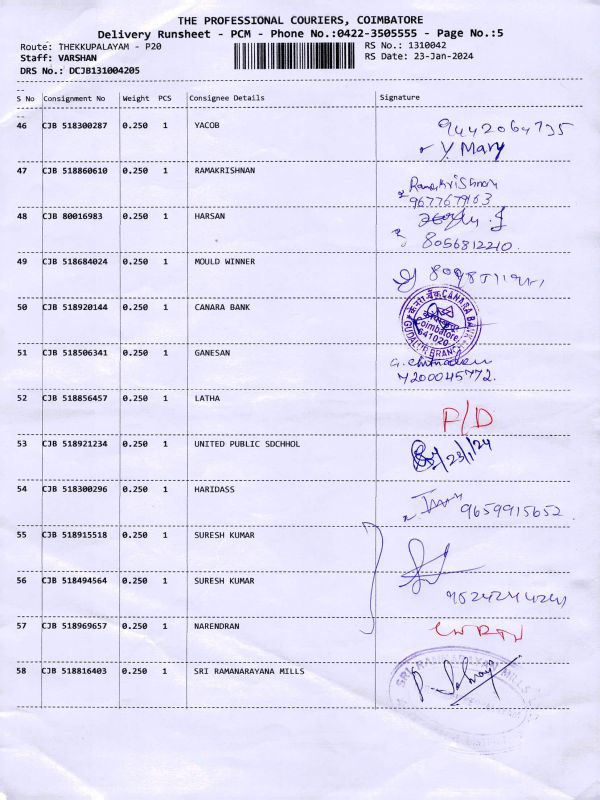 THE PROFESSIONAL COURIERS, COIMBATORE
Delivery Runsheet - PCM - Phone No.:0422-3505555 - Page No.:5
Route: THEKKUPALAYAM - P20 RS No.: 1310042
Staff: VARSHAN RS Date: 23-Jan-2024
DRS No.: DCJB131004205
S No Consignment No Weight PCS Consignee Details Signature
46 CJB 518300287 0.250 1 YACOB 9442064735
Y. Mary
47 CJB 518860610 0.250 1 RAMAKRISHNAN Ramakrishnan
9677679163
48 CJB 80016983 0.250 1 HARSAN
8056812210.
49 CJB 518684024 0.250 1 MOULD WINNER
50 CJB 518920144 0.250 1 CANARA BANK CANARA BANK
Coimbatore
641020
BRANCH
51 CJB 518506341 0.250 1 GANESAN
7200045772.
52 CJB 518856457 0.250 1 LATHA P/D
53 CJB 518921234 0.250 1 UNITED PUBLIC SDCHHOL 23/1/24
54 CJB 518300296 0.250 1 HARIDASS 9659915652
55 CJB 518915518 0.250 1 SURESH KUMAR
56 CJB 518494564 0.250 1 SURESH KUMAR
57 CJB 518969657 0.250 1 NARENDRAN
58 CJB 518816403 0.250 1 SRI RAMANARAYANA MILLS